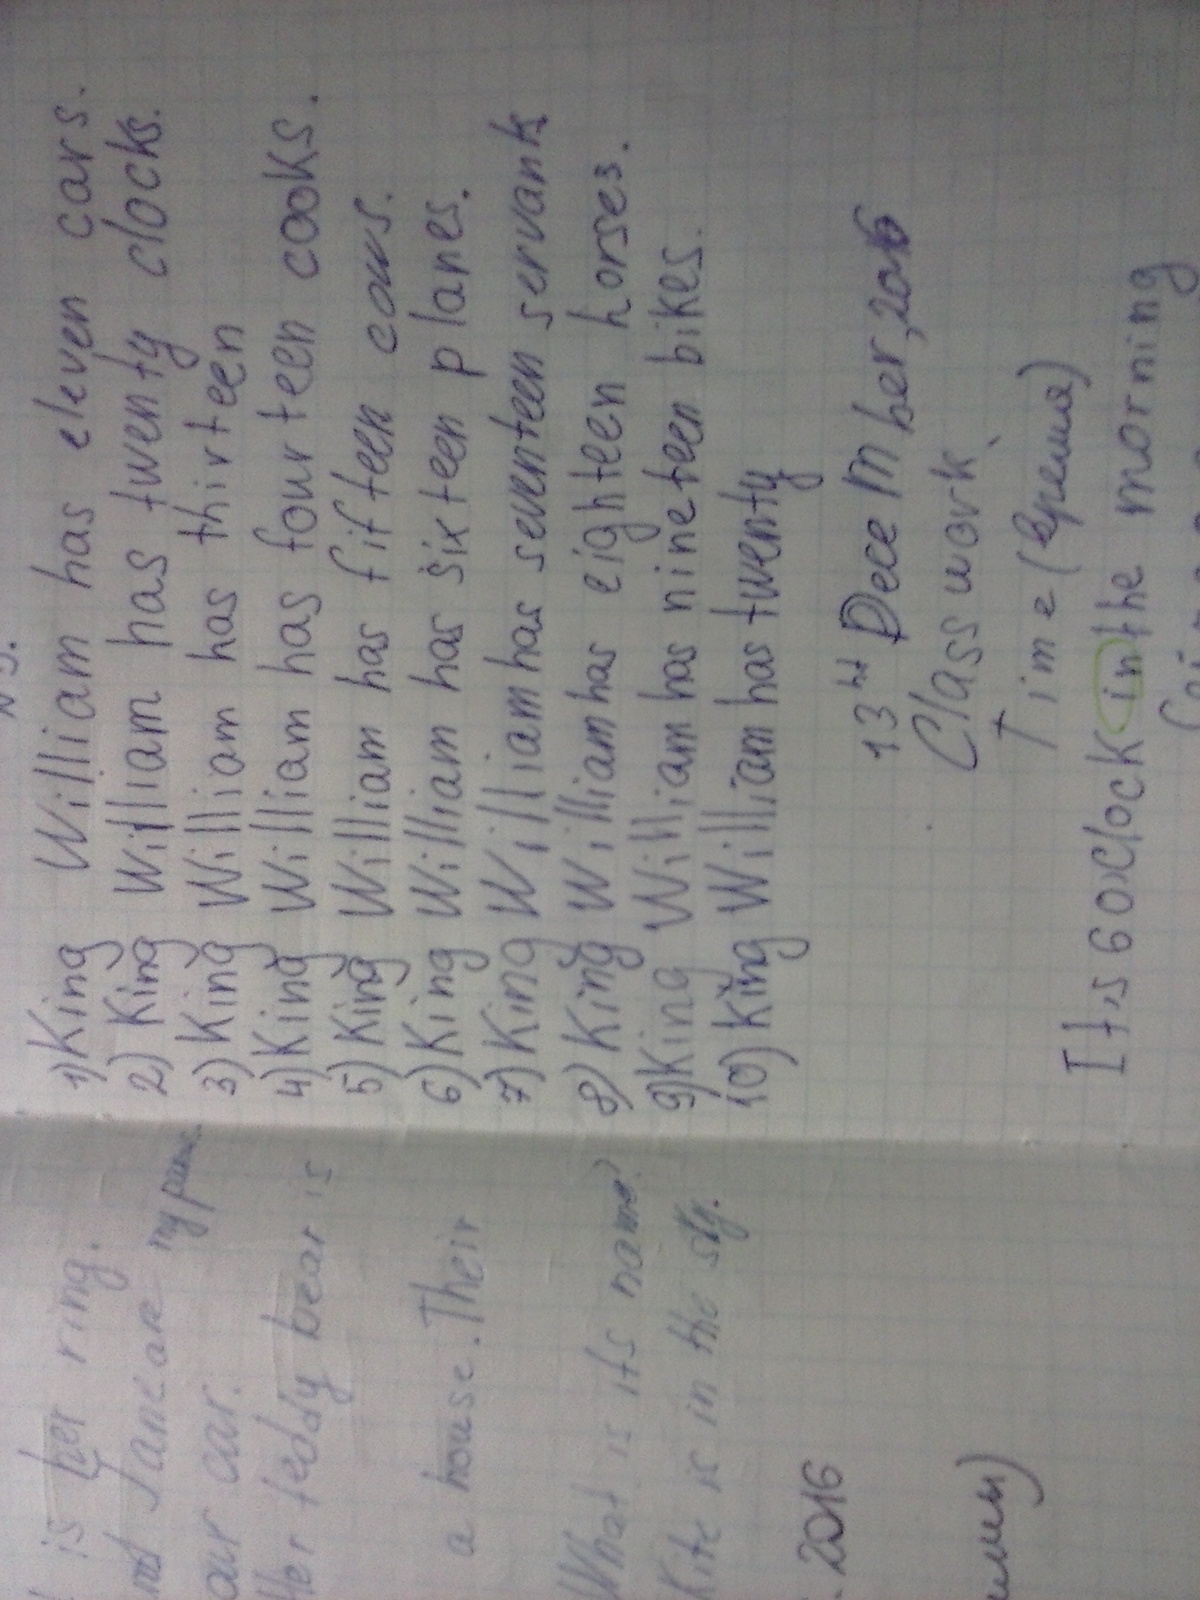 is her ring.
Jane are my
our car.
Her teddy bear is
a house. Their
What is its name?
Kite is in the sky.
. 2016
1) King William has eleven cars.
2) King William has twenty clocks.
3) King William has thirteen
4) King William has fourteen cooks.
5) King William has fifteen cows.
6) King William has sixteen planes.
7) King William has seventeen servants
8) King William has eighteen horses.
9) King William has nineteen bikes.
10) King William has twenty
13th December, 2016
Class work
Time (время)
It,s 6 oclock in the morning